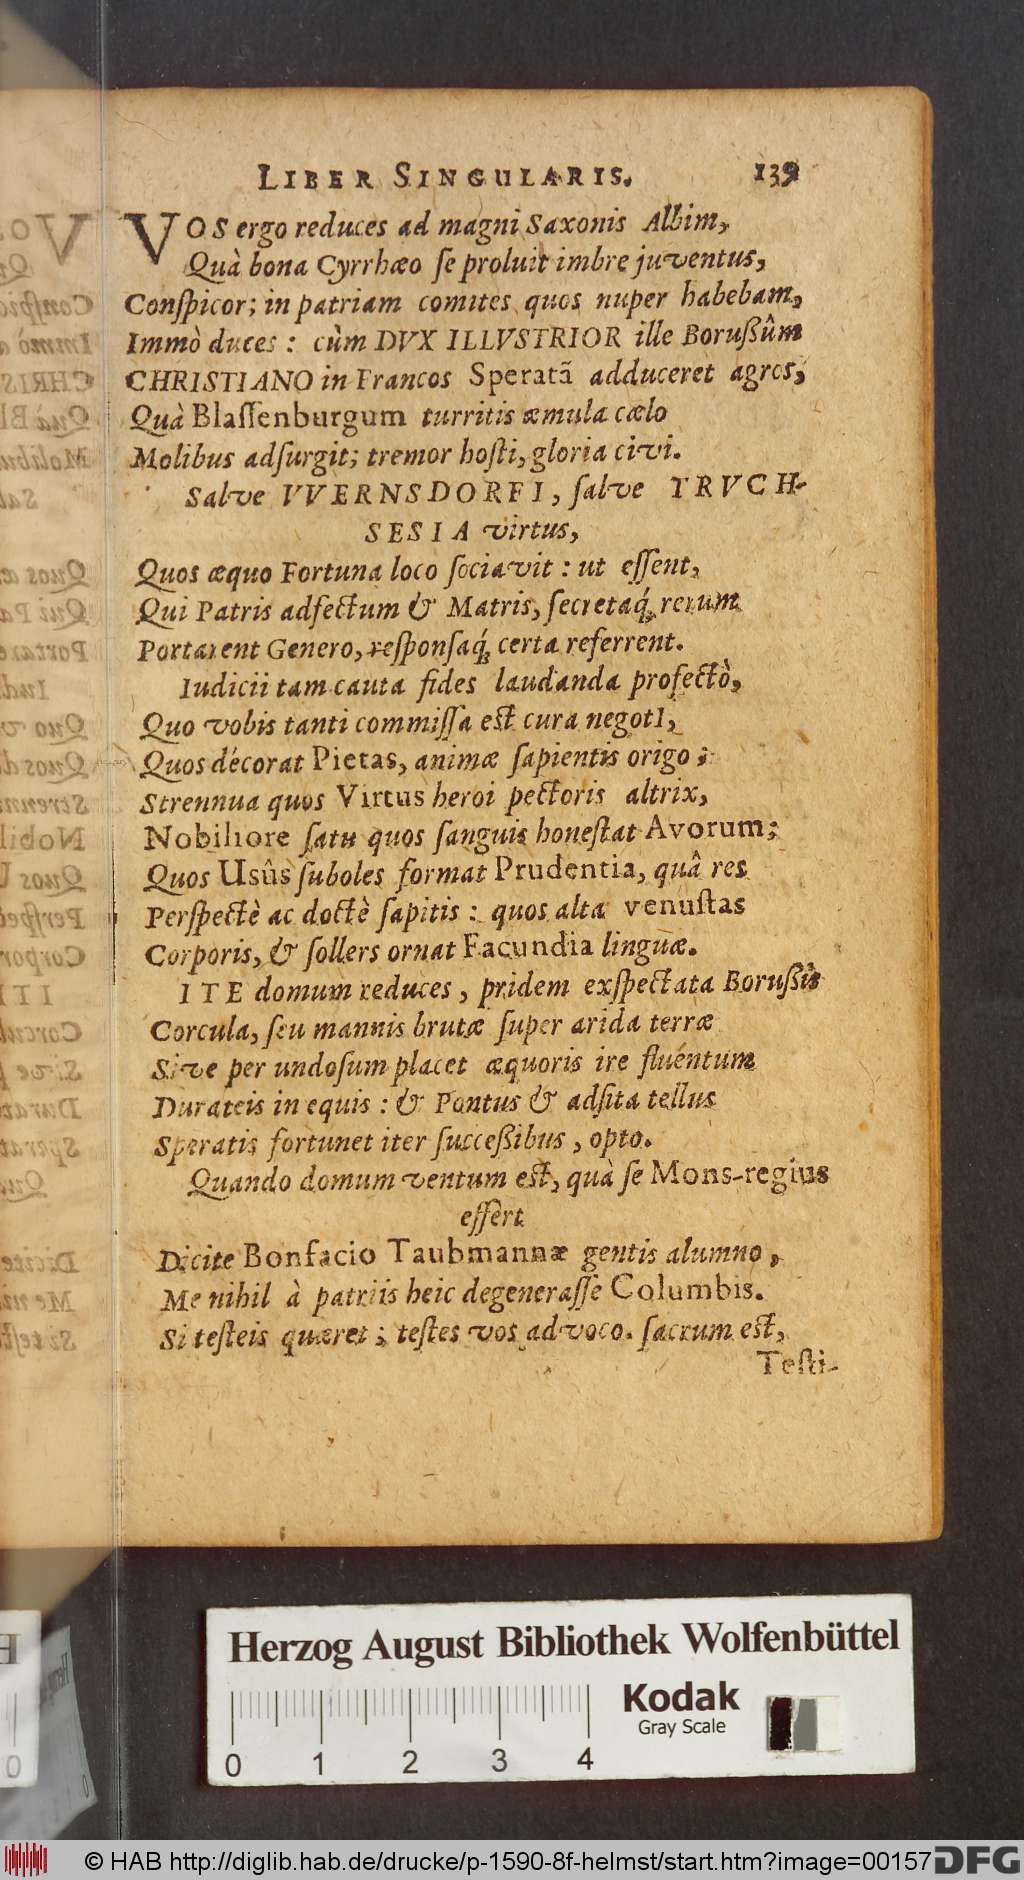 LIBER SINGULARIS. 139
VOS ergo reduces ad magni Saxonis Albim,
Quà bona Cyrrhæo se proluit imbre juventus,
Conspicor; in patriam comites quos nuper habebam,
Immò duces: cùm DVX ILLVSTRIOR ille Borußûm
CHRISTIANO in Francos Speratã adduceret agros,
Quà Blassenburgum turritis æmula cælo
Molibus adsurgit; tremor hosti, gloria civi.
Salve VVERNSDORFI, salve TRVCH-
SESIA virtus,
Quos æquo Fortuna loco sociavit: ut essent,
Qui Patris adfectum & Matris, secretaq́; rerum
Portarent Genero, responsaq́; certa referrent.
Iudicii tam cauta fides laudanda profectò,
Quo vobis tanti commissa est cura negotI,
Quos décorat Pietas, animæ sapientis origo;
Strennua quos Virtus heroi pectoris altrix,
Nobiliore satu quos sanguis honestat Avorum;
Quos Usûs suboles format Prudentia, quâ res
Perspectè ac doctè sapitis: quos alta venustas
Corporis, & sollers ornat Facundia linguæ.
ITE domum reduces, pridem exspectata Borußis
Corcula, seu mannis brutæ super arida terræ
Sive per undosum placet æquoris ire fluentum
Durateis in equis: & Pontus & adsita tellus
Speratis fortunet iter succeßibus, opto.
Quando domum ventum est, quà se Mons-regius
effert
Dicite Bonfacio Taubmannæ gentis alumno,
Me nihil à patriis heic degenerasse Columbis.
Si testeis quæret; testes vos advoco. sacrum est,
Testi-
Herzog August Bibliothek Wolfenbüttel
Kodak
Gray Scale
0 1 2 3 4
© HAB http://diglib.hab.de/drucke/p-1590-8f-helmst/start.htm?image=00157
DFG